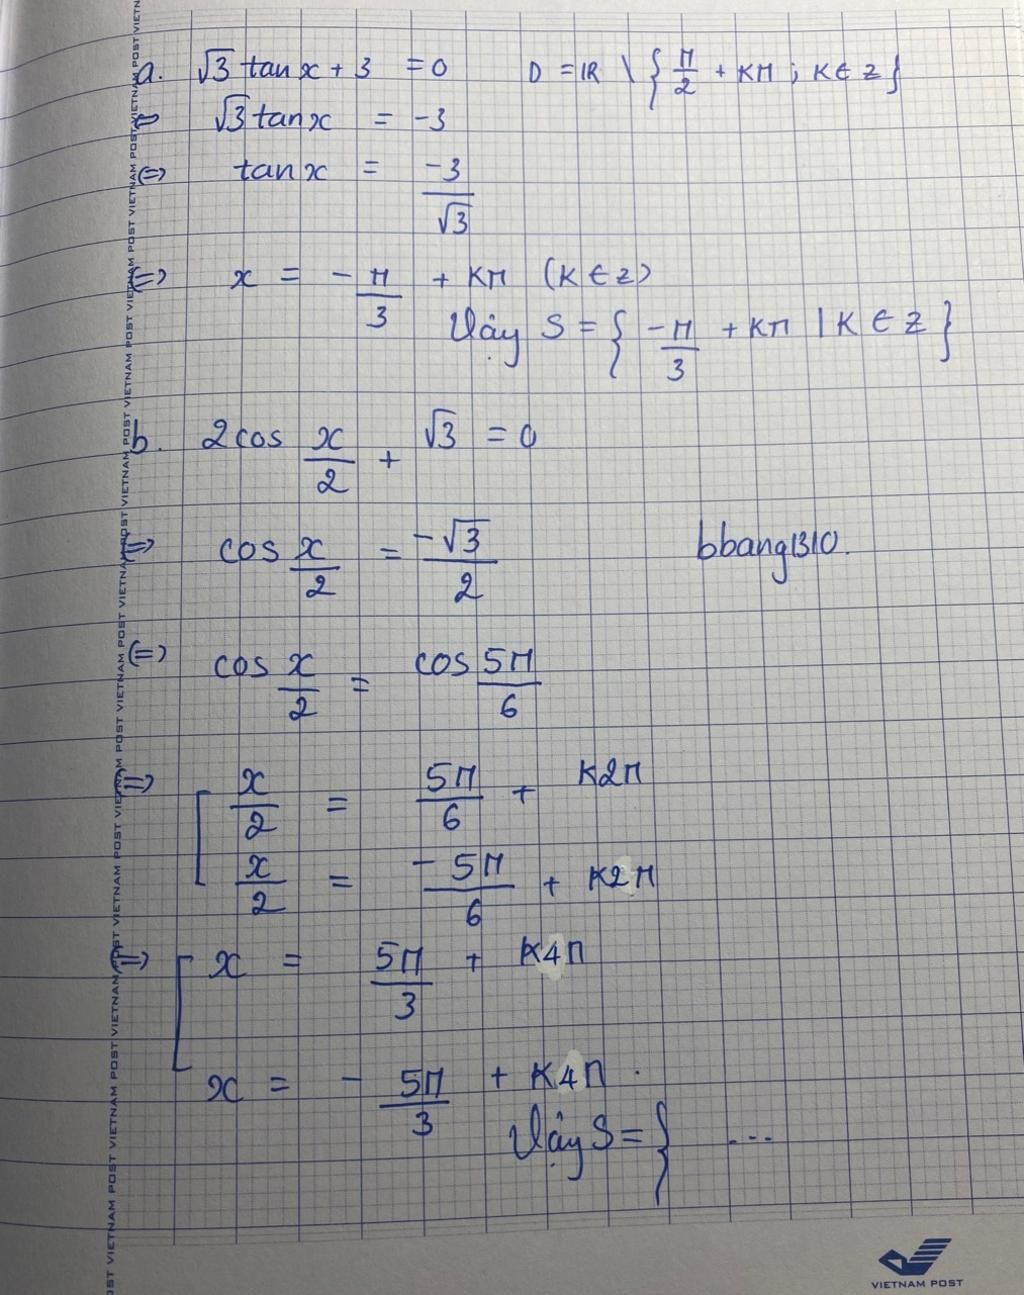 a. √3 tan x + 3 = 0 D = IR \ { π/2 + Kπ ; K ∈ Z }
⇔ √3 tan x = -3
⇔ tan x = -3/√3
⇔ x = - π/3 + Kπ (K ∈ Z)
Vậy S = { -π/3 + Kπ | K ∈ Z }
b. 2cos x/2 + √3 = 0
⇔ cos x/2 = -√3/2
bbang1310.
⇔ cos x/2 = cos 5π/6
⇔ [ x/2 = 5π/6 + K2π
x/2 = -5π/6 + K2π
⇔ [ x = 5π/3 + K4π
x = - 5π/3 + K4π .
Vậy S = { ...
VIETNAM POST VIETNAM POST VIETNAM POST VIETNAM POST VIETNAM POST VIETNAM POST VIETNAM POST VIETNAM POST VIETNAM POST
VIETNAM POST